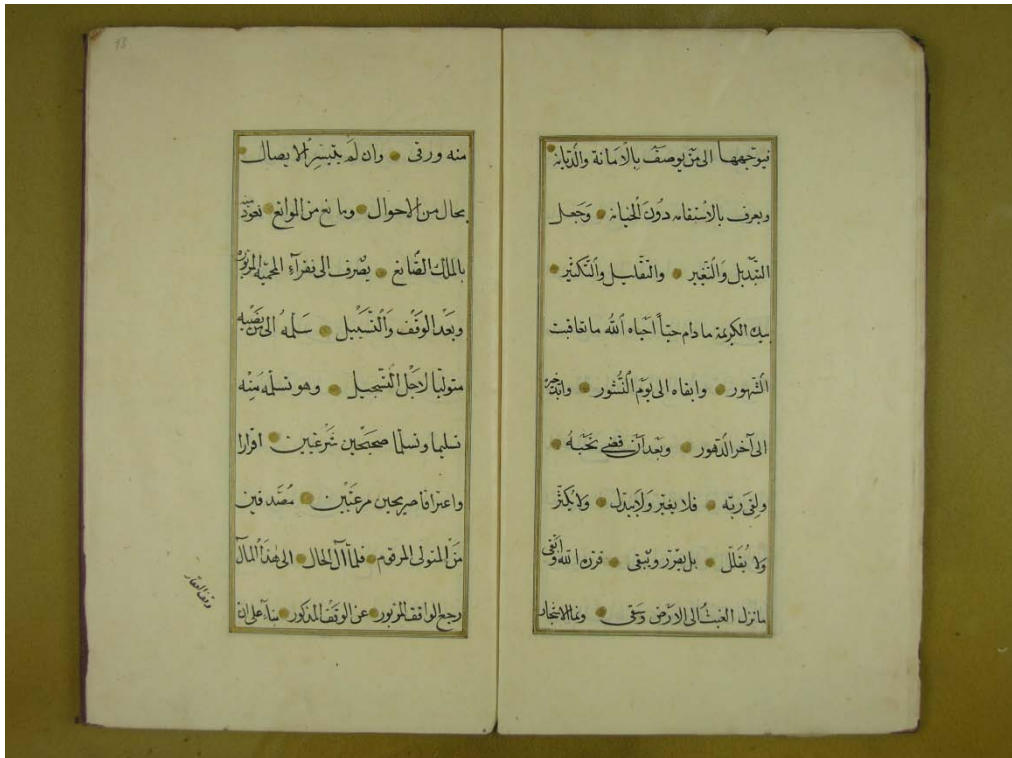 فيوجهها الى من يوصف بالامانة والديانة
ويعرف بالاستقامة دون الخيانة وجعل
التبديل والتغيير والتقليل والتكثير
بيك الكريمة ما دام حيا احياه الله ما تعاقبت
الشهور وابقاه الى يوم النشور وابد خيره
الى آخر الدهور وبعد ان قضى نحبه
ولقى ربه فلا يغير ولا يبدل ولا يكثر
ولا يقلل بل يقرر ويبقى قرره الله وابقى
ما نزل الغيث الى الارض وسقى ونما الاشجار
13
منه ورقى وان لم يتيسر الايصال
بحال من الاحوال وبانع من الموانع نعوذ منه
بالملك الصانع يصرف الى فقرآء المحمية المزبورة
وبعد الوقف والتسبيل سلمه الى من نصبه
متوليا لاجل التسجيل وهو تسلمه منه
تسليما وتسلما صحيحين شرعيين اقرارا
واعترافا صريحين مرعيين مصدقين
من المتولى المرقوم فلما آل الحال الى هذا المآل
رجع الواقف المزبور عن الوقف المذكور بناء على ان
وقف العقار